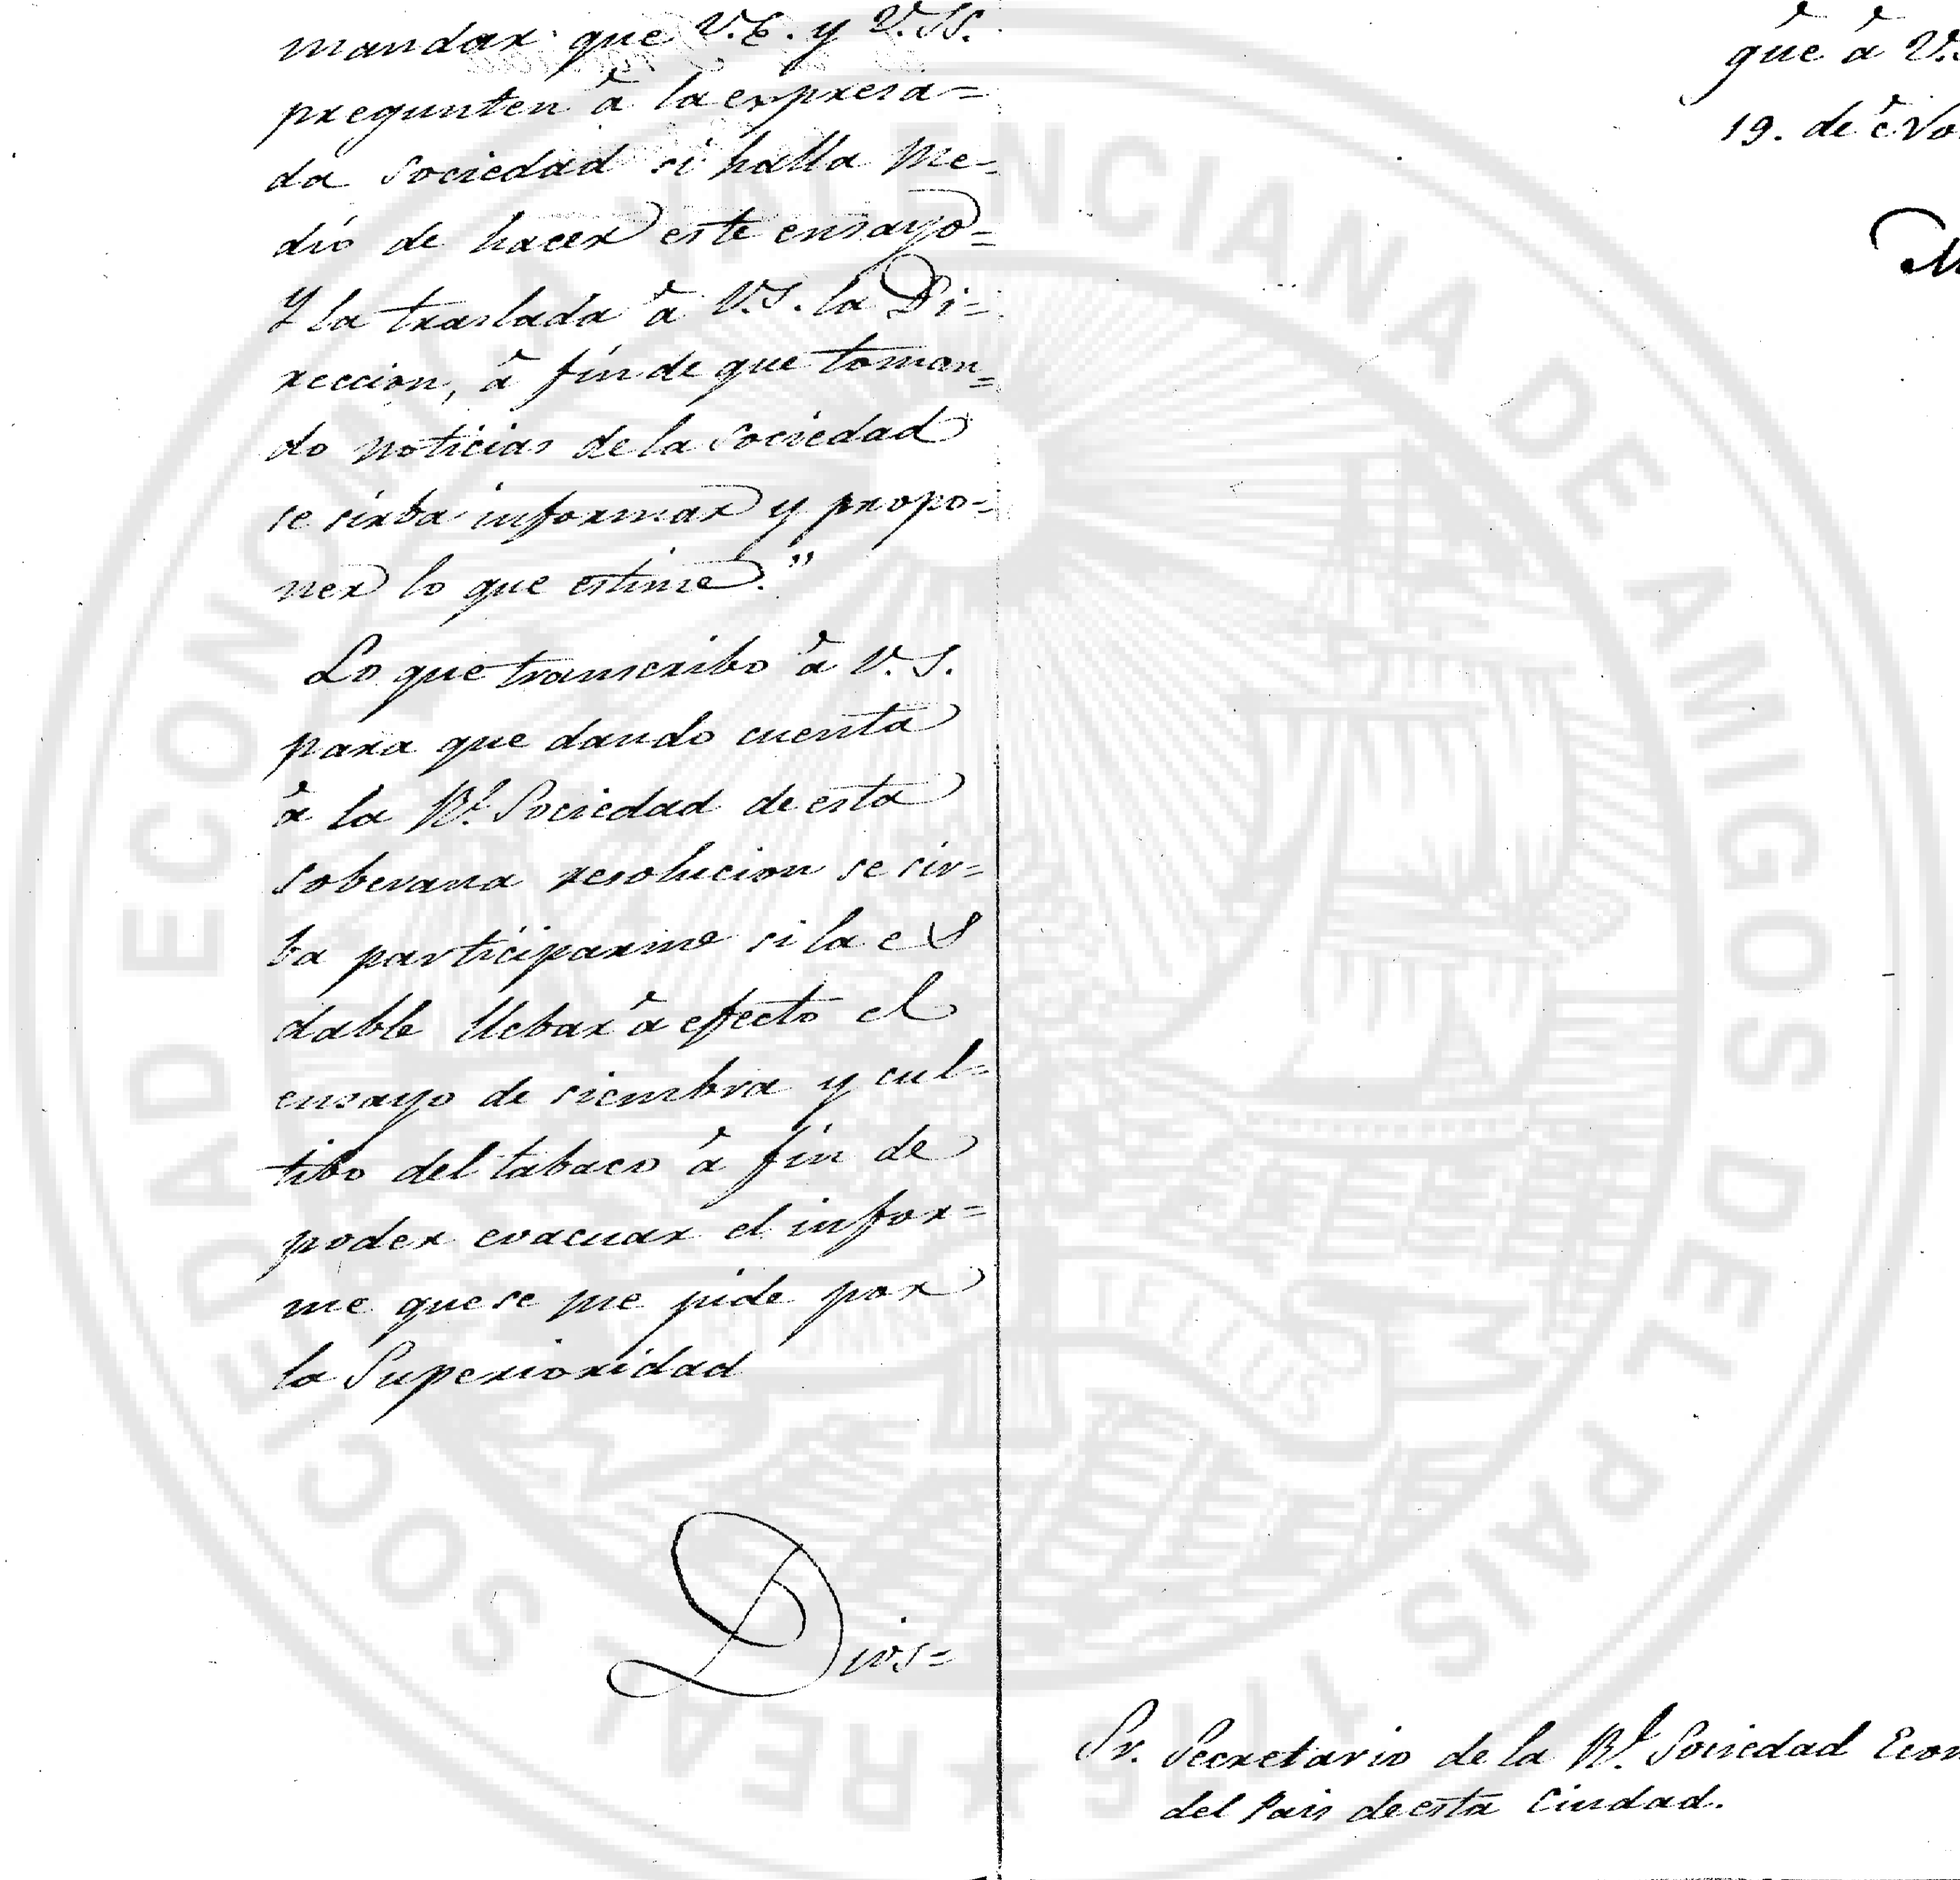 mandar que V.E. y V.SS.
pregunten â la expresa=
da Sociedad si halla me-
dio de hacer este ensayo=
Y la traslada â V.S. la Di=
reccion, â fin de que toman=
do noticias de la Sociedad
se sirba informar y propo-
ner lo que estime."
Lo que transcribo â V.S.
para que dando cuenta
â la Rl. Sociedad de esta
soberana resolucion se sir=
ba participarme si la es
dable llebar â efecto el
ensayo de siembra y cul=
tibo del tabaco â fin de
poder evacuar el infor=
me que se me pide por
la Superioridad
Dios=
que â V.
19. de No
M
Sr. Secretario de la Rl. Sociedad Econ
del Pais de esta Ciudad.
REAL SOCIEDAD ECONOMICA VALENCIANA DE AMIGOS DEL PAIS